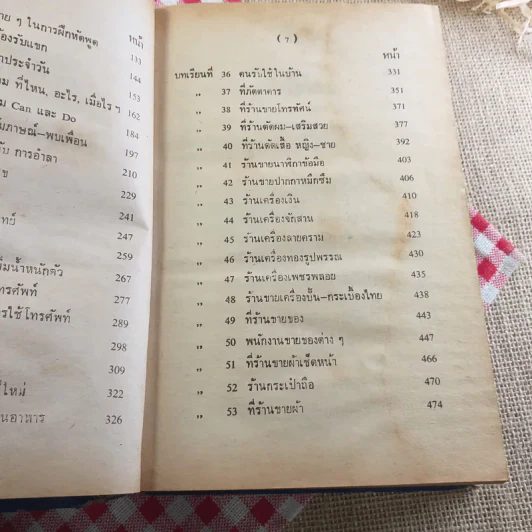 าย ๆ ในการฝึกหัดพูด หน้า
้องรับแขก 133
าประจำวัน 144
ม ที่ไหน, อะไร, เมื่อไร ๆ 153
ม Can และ Do 162
ัมภาษณ์–พบเพื่อน 184
ับ การอำลา 197
ข 210
229
ทย์ 241
247
259
่มน้ำหนักตัว 267
ทรศัพท์ 277
ารใช้โทรศัพท์ 289
298
309
ีใหม่ 322
นอาหาร 326
( 7 )
หน้า
บทเรียนที่ 36 คนรับใช้ในบ้าน 331
„ 37 ที่ภัตตาคาร 351
„ 38 ที่ร้านขายโทรทัศน์ 371
„ 39 ที่ร้านตัดผม–เสริมสวย 377
„ 40 ที่ร้านตัดเสื้อ หญิง–ชาย 392
„ 41 ร้านขายนาฬิกาข้อมือ 403
„ 42 ร้านขายปากกาหมึกซึม 406
„ 43 ร้านเครื่องเงิน 410
„ 44 ร้านเครื่องจักสาน 418
„ 45 ร้านเครื่องลายคราม 423
„ 46 ร้านเครื่องทองรูปพรรณ 430
„ 47 ร้านเครื่องเพชรพลอย 435
„ 48 ร้านขายเครื่องปั้น–กระเบื้องไทย 438
„ 49 ที่ร้านขายของ 443
„ 50 พนักงานขายของต่าง ๆ 447
„ 51 ที่ร้านขายผ้าเช็ดหน้า 466
„ 52 ร้านกระเป๋าถือ 470
„ 53 ที่ร้านขายผ้า 474